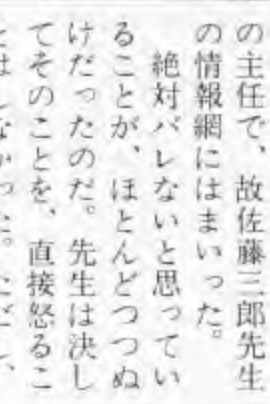 の主任で、故佐藤三郎先生
の情報網にはまいった。
絶対バレないと思ってい
ることが、ほとんどつつぬ
けだったのだ。先生は決し
てそのことを、直接怒るこ
とはしなかった。ただし、